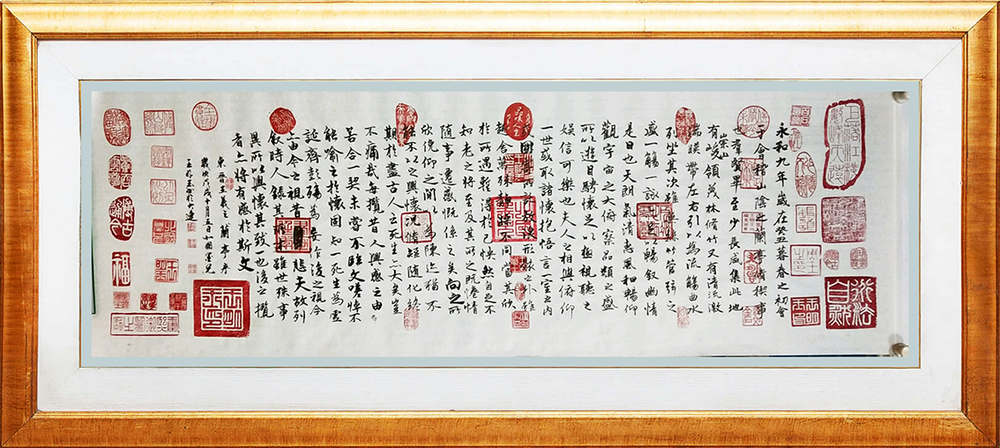 永和九年歲在癸丑暮春之初會
于會稽山陰之蘭亭脩禊事
也羣賢畢至少長咸集此地
有崇山峻領茂林修竹又有清流激
湍暎帶左右引以為流觴曲水
列坐其次雖無絲竹管弦之
盛一觴一詠亦足以暢叙幽情
是日也天朗氣清惠風和暢仰
觀宇宙之大俯察品類之盛
所以遊目騁懷足以極視聽之
娛信可樂也夫人之相與俯仰
一世或取諸懷抱悟言一室之內
或因寄所託放浪形骸之外雖
趣舍萬殊靜躁不同當其欣
於所遇蹔得於己快然自足不
知老之將至及其所之既惓情
隨事遷感慨係之矣向之所
欣俛仰之間以為陳迹猶不
能不以之興懷況脩短隨化終
期於盡古人云死生亦大矣豈
不痛哉每攬昔人興感之由
若合一契未嘗不臨文嗟悼不
能喻之於懷固知一死生為虛
誕齊彭殤為妄作後之視今
亦由今之視昔悲夫故列
叙時人錄其所述雖世殊事
異所以興懷其致一也後之攬
者亦將有感於斯文
東晉王羲之蘭亭序
歲次戊戌十月五日小園墨兒
書於大連
道法自然
福